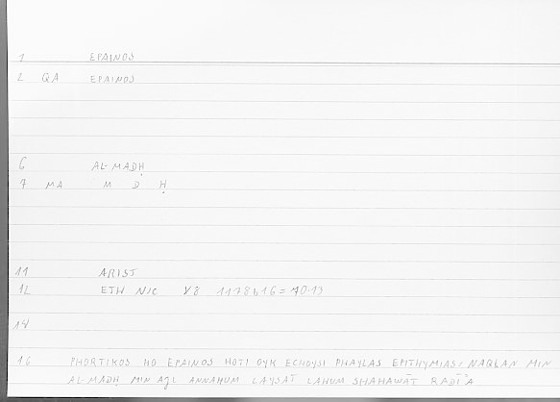 1 EPAINOS
2 QA EPAINOS
6 AL-MADḤ
7 MA M D Ḥ
11 ARIST
12 ETH NIC 1178b16 = 10.13
14
16 PHORTIKOS HO EPAINOS HOTI OYK ECHOYSI PHAYLAS EPITHYMIAS: NAQLAN MIN
AL-MADḤ MIN AǦL ANNAHUM LAYSAT LAHUM SHAHAWĀT RADĪ'A